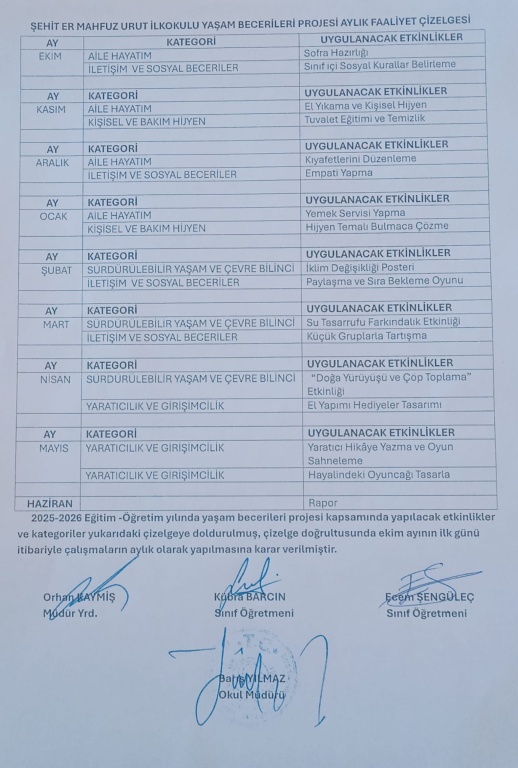 ŞEHİT ER MAHFUZ URUT İLKOKULU YAŞAM BECERİLERİ PROJESİ AYLIK FAALİYET ÇİZELGESİ
AY KATEGORİ UYGULANACAK ETKİNLİKLER
EKİM AİLE HAYATIM Sofra Hazırlığı
İLETİŞİM VE SOSYAL BECERİLER Sınıf içi Sosyal Kurallar Belirleme
AY KATEGORİ UYGULANACAK ETKİNLİKLER
KASIM AİLE HAYATIM El Yıkama ve Kişisel Hijyen
KİŞİSEL VE BAKIM HİJYEN Tuvalet Eğitimi ve Temizlik
AY KATEGORİ UYGULANACAK ETKİNLİKLER
ARALIK AİLE HAYATIM Kıyafetlerini Düzenleme
İLETİŞİM VE SOSYAL BECERİLER Empati Yapma
AY KATEGORİ UYGULANACAK ETKİNLİKLER
OCAK AİLE HAYATIM Yemek Servisi Yapma
KİŞİSEL VE BAKIM HİJYEN Hijyen Temalı Bulmaca Çözme
AY KATEGORİ UYGULANACAK ETKİNLİKLER
ŞUBAT SÜRDÜRÜLEBİLİR YAŞAM VE ÇEVRE BİLİNCİ İklim Değişikliği Posteri
İLETİŞİM VE SOSYAL BECERİLER Paylaşma ve Sıra Bekleme Oyunu
AY KATEGORİ UYGULANACAK ETKİNLİKLER
MART SÜRDÜRÜLEBİLİR YAŞAM VE ÇEVRE BİLİNCİ Su Tasarrufu Farkındalık Etkinliği
İLETİŞİM VE SOSYAL BECERİLER Küçük Gruplarla Tartışma
AY KATEGORİ UYGULANACAK ETKİNLİKLER
NİSAN SÜRDÜRÜLEBİLİR YAŞAM VE ÇEVRE BİLİNCİ “Doğa Yürüyüşü ve Çöp Toplama”
Etkinliği
YARATICILIK VE GİRİŞİMCİLİK El Yapımı Hediyeler Tasarımı
AY KATEGORİ UYGULANACAK ETKİNLİKLER
MAYIS YARATICILIK VE GİRİŞİMCİLİK Yaratıcı Hikâye Yazma ve Oyun
Sahneleme
YARATICILIK VE GİRİŞİMCİLİK Hayalindeki Oyuncağı Tasarla
HAZİRAN Rapor
2025-2026 Eğitim -Öğretim yılında yaşam becerileri projesi kapsamında yapılacak etkinlikler
ve kategoriler yukarıdaki çizelgeye doldurulmuş, çizelge doğrultusunda ekim ayının ilk günü
itibariyle çalışmaların aylık olarak yapılmasına karar verilmiştir.
Orhan KAYMIŞ Kübra BARCIN Ecem ŞENGÜLEÇ
Müdür Yrd. Sınıf Öğretmeni Sınıf Öğretmeni
Barış YILMAZ
Okul Müdürü